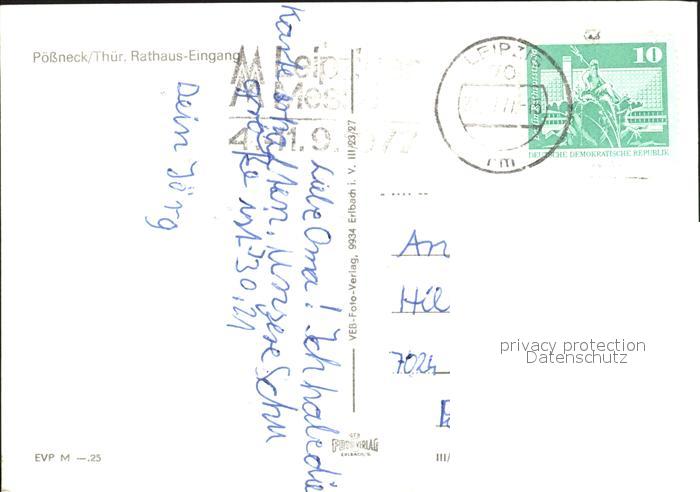 Pößneck/Thür. Rathaus-Eingang
Leipziger
Messe
4.-11.9.1977
LEIPZIG
70
rm
10
DEUTSCHE DEMOKRATISCHE REPUBLIK
Liebe Oma! Ich habe die
Karte erhalten. Unsere Schu
größe ist 30, 21
Dein Jörg
VEB-Foto-Verlag, 9934 Erlbach i. V. III/23/27
An
Hil
702
privacy protection
Datenschutz
EVP M —.25
FOTO-VERLAG
ERLBACH
III/